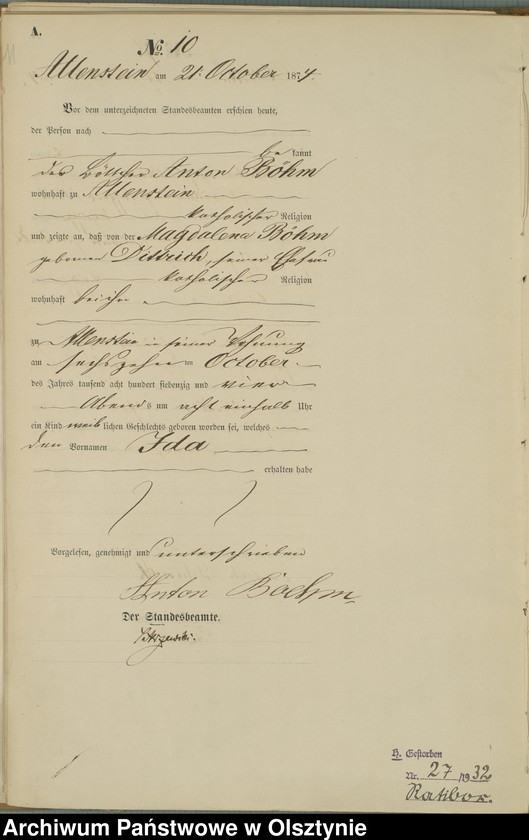 A.
No. 10
Allenstein am 21. October 1874.
Vor dem unterzeichneten Standesbeamten erschien heute,
der Person nach
be kannt
der Böttcher Anton Böhm
wohnhaft zu Allenstein
katholischer Religion
und zeigte an, daß von der Magdalena Böhm
geborner Dittrich, seiner Ehefrau
katholischer Religion
wohnhaft bei ihm
zu Allenstein in seiner Wohnung
am sechszehn ten October
des Jahres tausend acht hundert siebenzig und vier
Abends um acht einhalb Uhr
ein Kind weib lichen Geschlechts geboren worden sei, welches
den Vornamen Ida
erhalten habe
Vorgelesen, genehmigt und unterschrieben
Anton Boehm
Der Standesbeamte.
H. Gestorben
Nr. 27/1932
Ratibor.
Archiwum Państwowe w Olsztynie